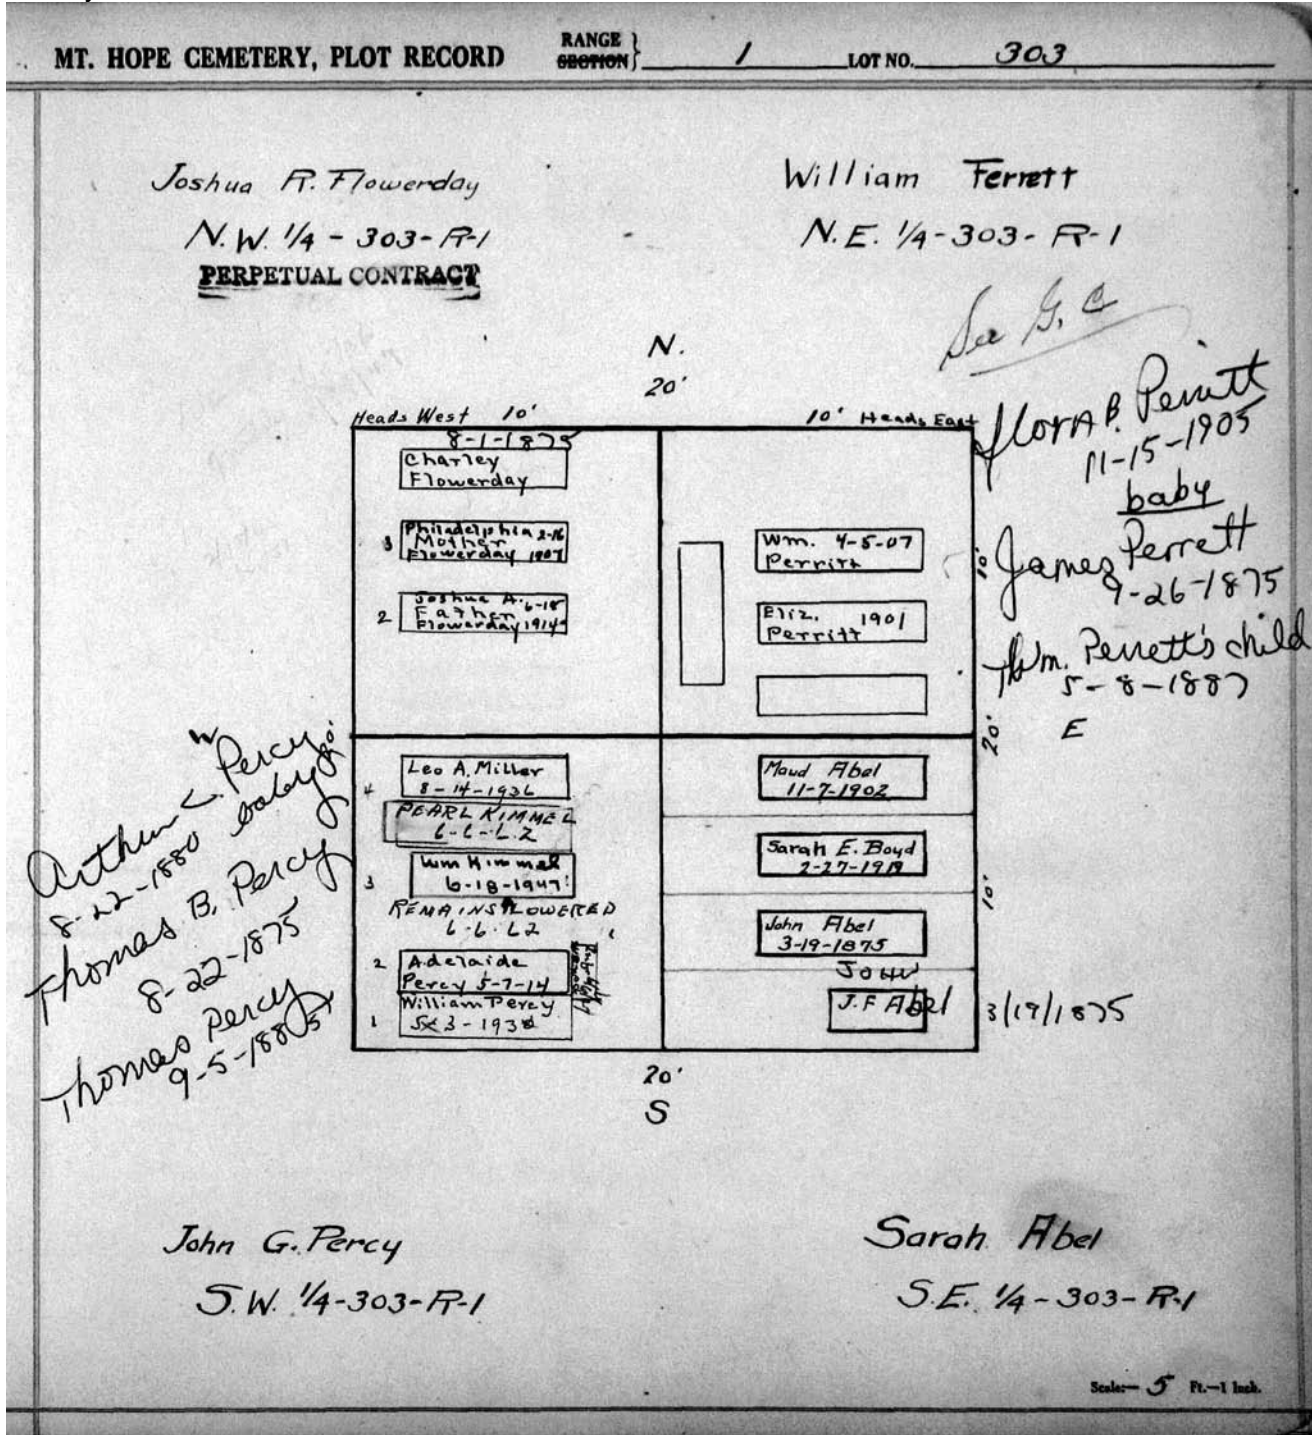 MT. HOPE CEMETERY, PLOT RECORD RANGE SECTION } 1 LOT NO. 303
Joshua R. Flowerday
N.W. 1/4 - 303 - R-1
PERPETUAL CONTRACT
William Ferrett
N.E. 1/4 - 303 - R-1
See G. C
N.
20'
Heads West 10'
10' Heads East
8-1-1875
Charley
Flowerday
3 Philadelphia 2-16
Mother
Flowerday 1907
2 Joshua A. 6-18
Father
Flowerday 1914
Wm. 4-5-07
Perritt
Eliz. 1901
Perritt
Flora B. Perritt
11-15-1905
baby
10'
James Perrett
9-26-1875
Wm. Perrett's child
5-8-1887
20'
E
Arthur W Percy
8-22-1880 baby
Thomas B. Percy
8-22-1875
Thomas Percy
9-5-1885
4 Leo A. Miller
8-14-1936
PEARL KIMMEL
6-6-62
3 Wm Kimmel
6-18-1947
REMAINS LOWERED
6-6-62
2 Adelaide
Percy 5-7-14
1 William Percy
3-193
Maud Abel
11-7-1902
Sarah E. Boyd
2-27-19
10'
John Abel
3-19-1875
John
J.F Abel 3/19/1875
20'
S
John G. Percy
S.W. 1/4-303-R-1
Sarah Abel
S.E. 1/4-303-R-1
Scale:— 5 Ft.—1 Inch.